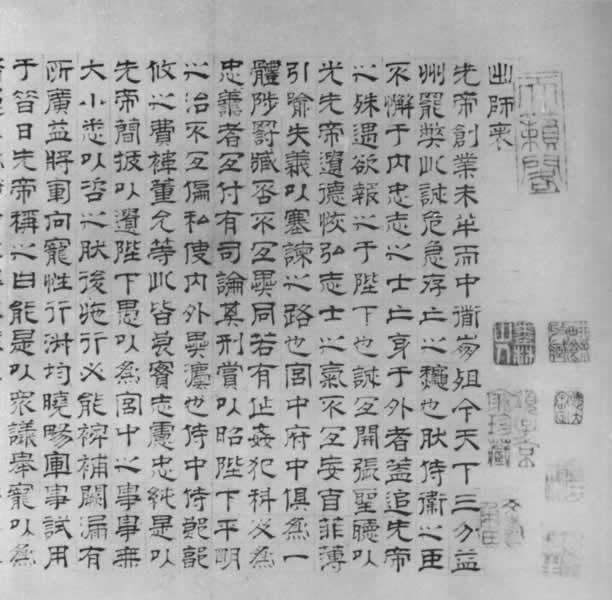 天籟閣
項子京家珍藏
出師表
先帝創業未半而中道崩殂今天下三分益
州罷弊此誠危急存亡之秋也然侍衛之臣
不懈于內忠志之士亡身于外者蓋追先帝
之殊遇欲報之于陛下也誠宜開張聖聽以
光先帝遺德恢弘志士之氣不宜妄自菲薄
引喻失義以塞諫之路也宮中府中俱為一
體陟罰臧否不宜異同若有作姦犯科及為
忠善者宜付有司論其刑賞以昭陛下平明
之治不宜偏私使內外異法也侍中侍郎郭
攸之費禕董允等此皆良實志慮忠純是以
先帝簡拔以遺陛下愚以為宮中之事事無
大小悉以咨之然後施行必能裨補闕漏有
所廣益將軍向寵性行淑均曉暢軍事試用
于昔日先帝稱之曰能是以眾議舉寵以為